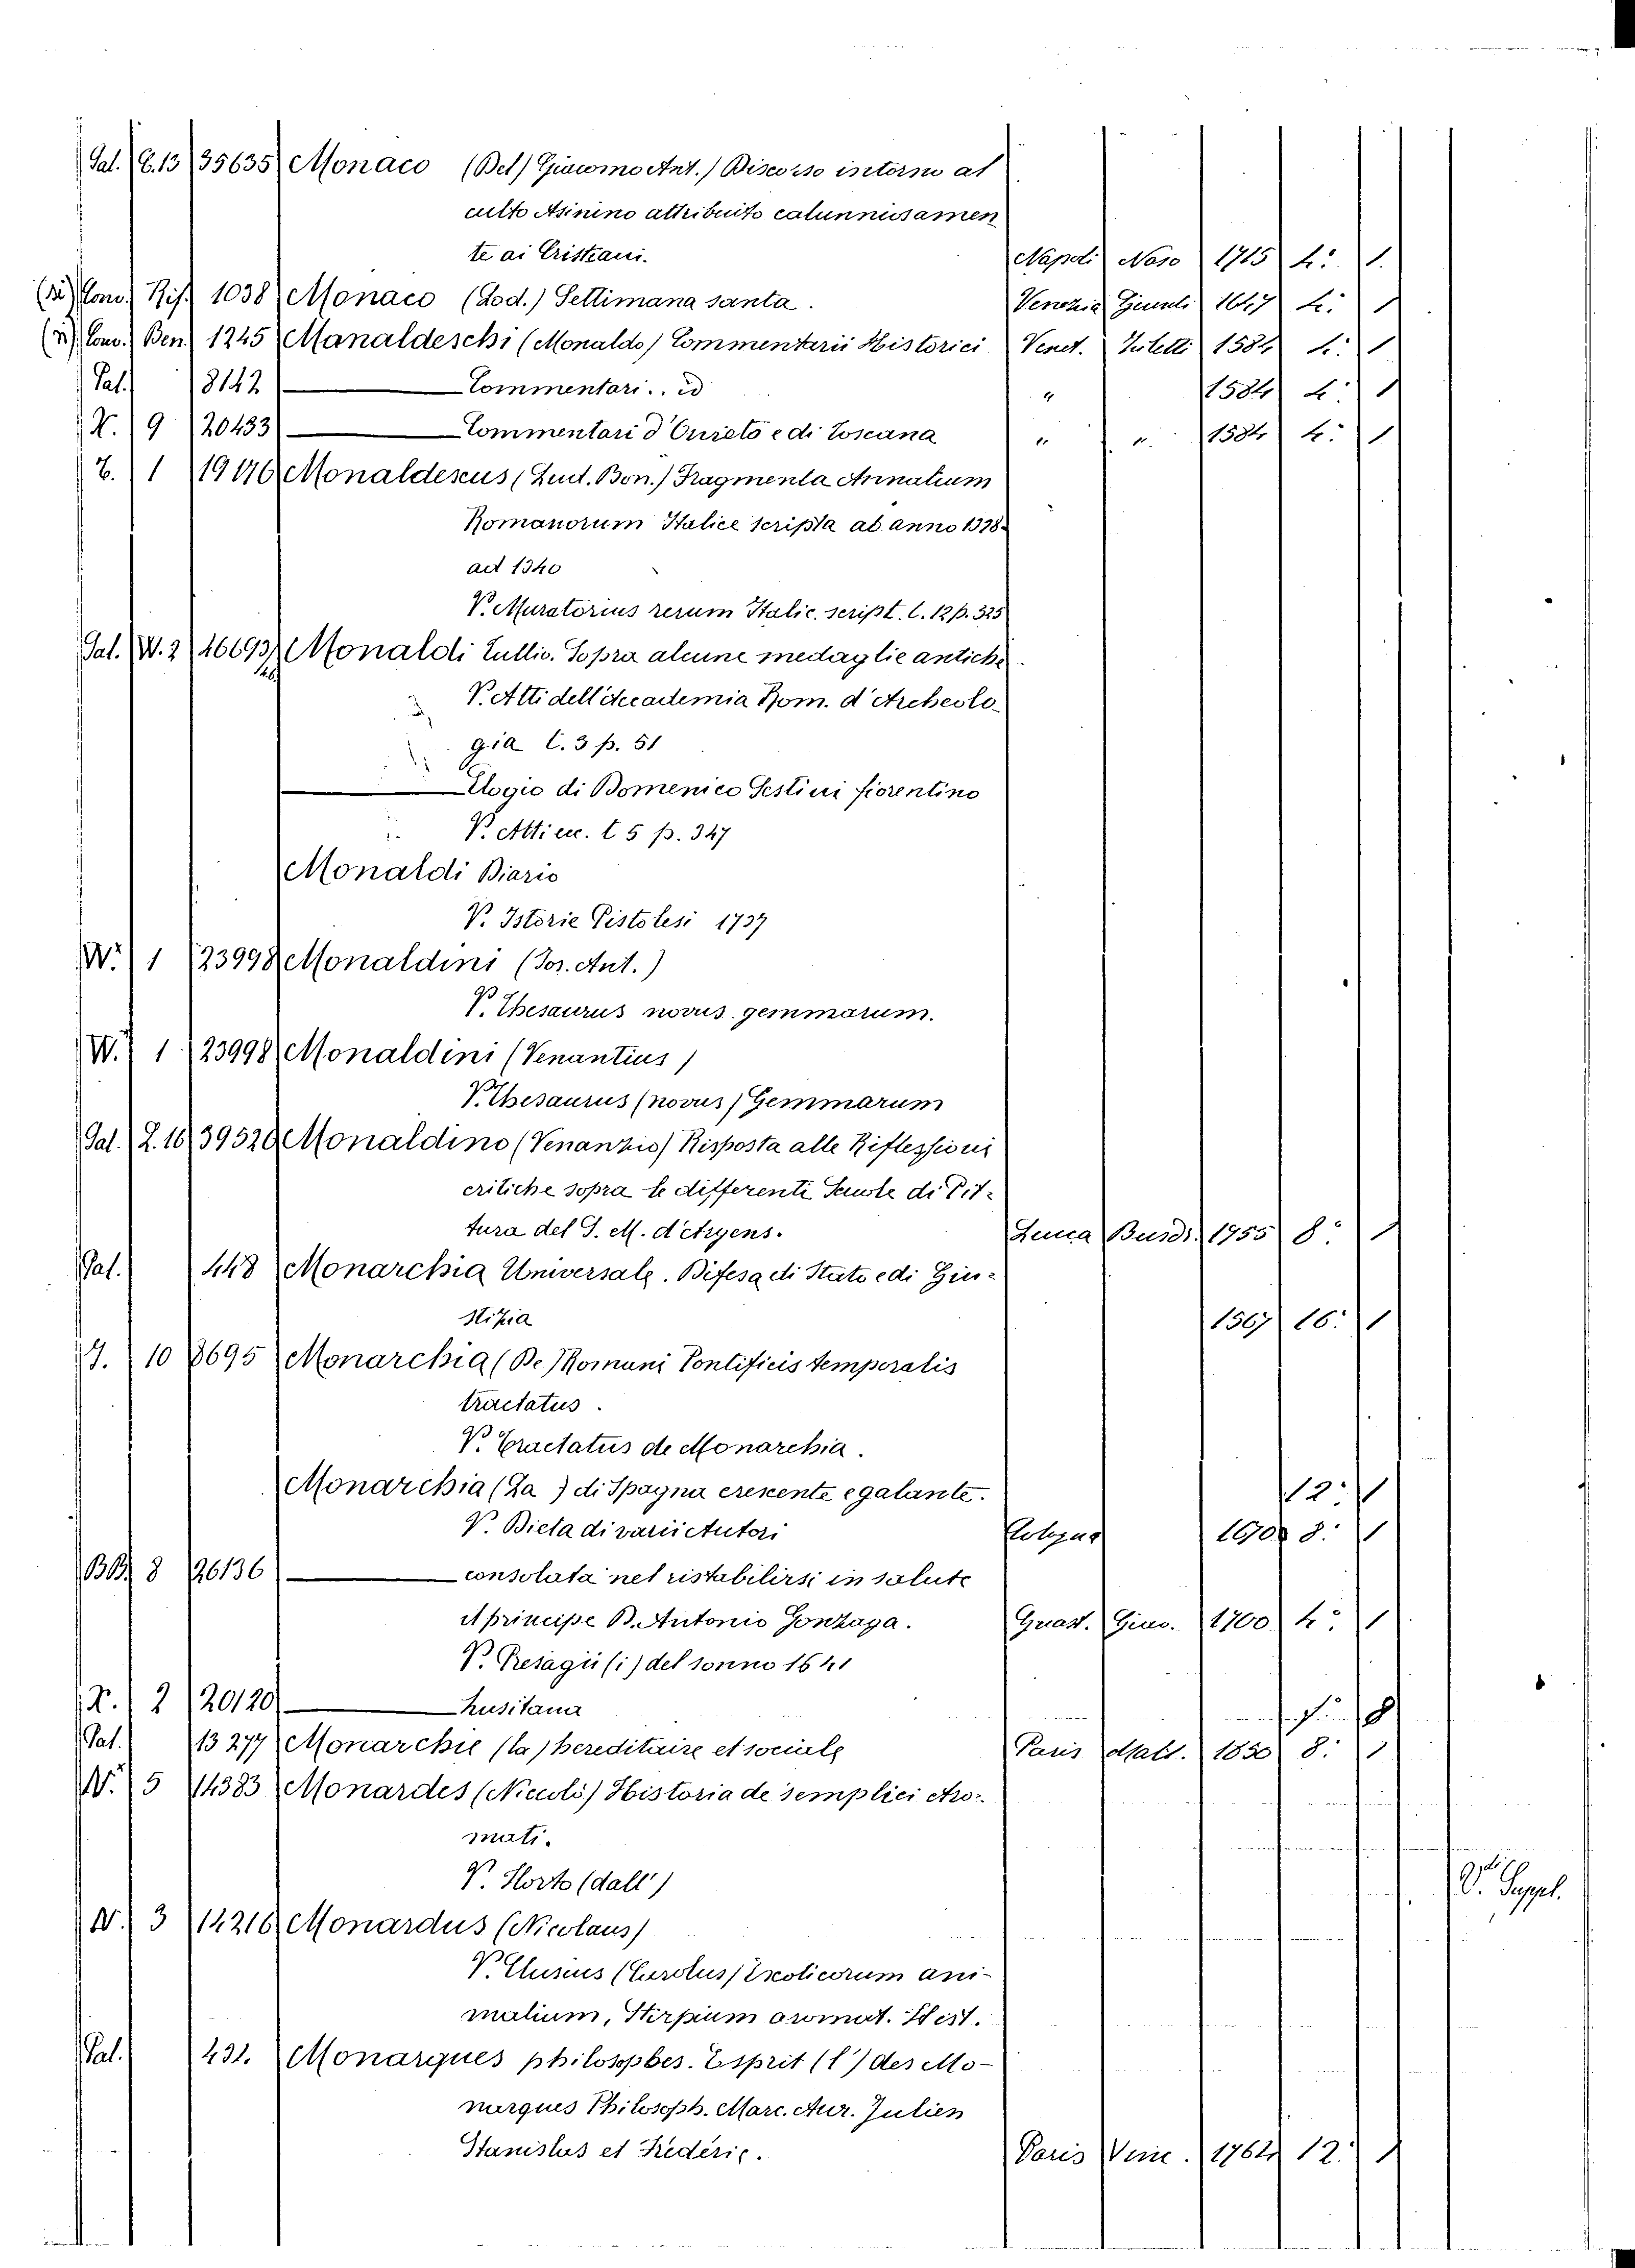 Pal. C.13 35635 Monaco (Del) Giacomo Ant.) Discorso intorno al
culto Asinino attribuito calunniosamen
te ai Cristiani. Napoli Naso 1715 4.° 1.
Conv. Rif. 1038 Monaco (Lod.) Settimana santa. Venezia Giunti 1647 4.° 1
Conv. Ben. 1245 Manaldeschi (Monaldo) Commentarii Historici Venet. Ziletti 1584 4.° 1
Pal. 8142 ——— Commentari.. id " 1584 4.° 1
N. 9 20433 ——— Commentari d'Orvieto e di Toscana " " 1584 4.° 1
1 Monaldescus (Lud. Bon.) Fragmenta Annalium
Romanorum Italice scripta ab anno 1328-
ad 1340
V. Muratorius rerum Italic. script. t. 12 p. 325
Pal. W. 2 26693 Monaldi Tullio. Sopra alcune medaglie antiche.
V. Atti dell'Accademia Rom. d'Archeolo-
gia t. 3 p. 51
——— Elogio di Domenico Sestini fiorentino
V. Atti ecc. t 5 p. 347
Monaldi Diario
V. Istorie Pistolesi 1737
W. 1 23998 Monaldini (Jos. Ant.)
V. Thesaurus novus gemmarum.
W. 1 23998 Monaldini (Venantius)
V. Thesaurus (novus) Gemmarum
Pal. Z.16 39520 Monaldino (Venanzio) Risposta alle Riflessioni
critiche sopra le differenti Scuole di Pit-
tura del S. M. d'Argens. Lucca Busdr. 1755 8.° 1
Pal. 448 Monarchia Universale. Difesa di Stato e di Giu-
stizia 1567 16.° 1
10 8695 Monarchia (De) Romani Pontificis temporalis
tractatus.
V. Tractatus de Monarchia.
Monarchia (La) di Spagna crescente e galante. 12.° 1
V. Dieta di varii Autori Cologna 8.° 1
BB. 8 26136 ——— consolata nel ristabilirsi in salute
il principe D. Antonio Gonzaga. Guast. Giav. 1700 4.° 1
V. Presagii (i) del sonno 1641
X. 2 20120 ——— Lusitana
Pal. 13277 Monarchie (la) hereditaire et sociale Paris 1830 8.° 1
N. 5 14383 Monardes (Niccolò) Historia de semplici Aro-
mati.
V. Horto (dall') V. Suppl.
N. 3 14216 Monardus (Nicolaus)
V. Clusius (Carolus) Exoticorum ani-
malium, Stirpium aromat. Hist.
Pal. 432. Monarques philosophes. Esprit (l') des Mo-
narques Philosoph. Marc. Aur. Julien
Stanislas et Fréderic. Paris Vinc. 1764 12.° 1